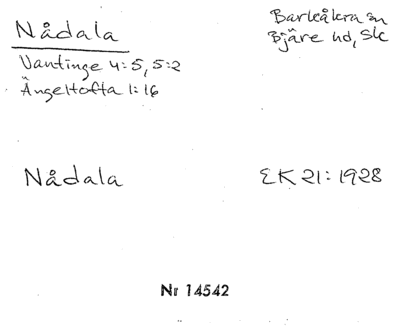 Nådala
Barkåkra sn
Bjäre hd, Sk
Vantinge 4:5, 5:2
Ängeltofta 1:16
Nådala
EK 21: 1928
Nr 14542